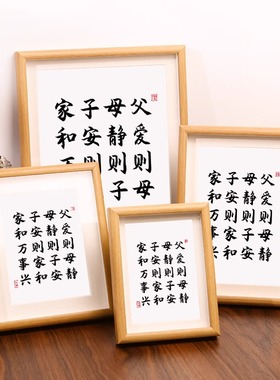 父爱则母
母静则子
子安则
家和万
父爱则母静
母静则子安
子安则家和
家和万
父爱则母静
母静则子安
子安则家和
家和万事兴
父爱则母静
母静则子安
子安则家和
家和万事兴